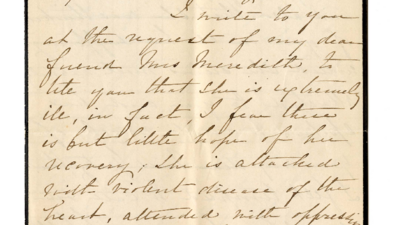 I write to you
at the request of my dear
friend Mrs Meredith, to
tell you that she is extremely
ill, in fact, I fear there
is but little hope of her
recovery; she is attacked
with violent disease of the
heart, attended with oppress